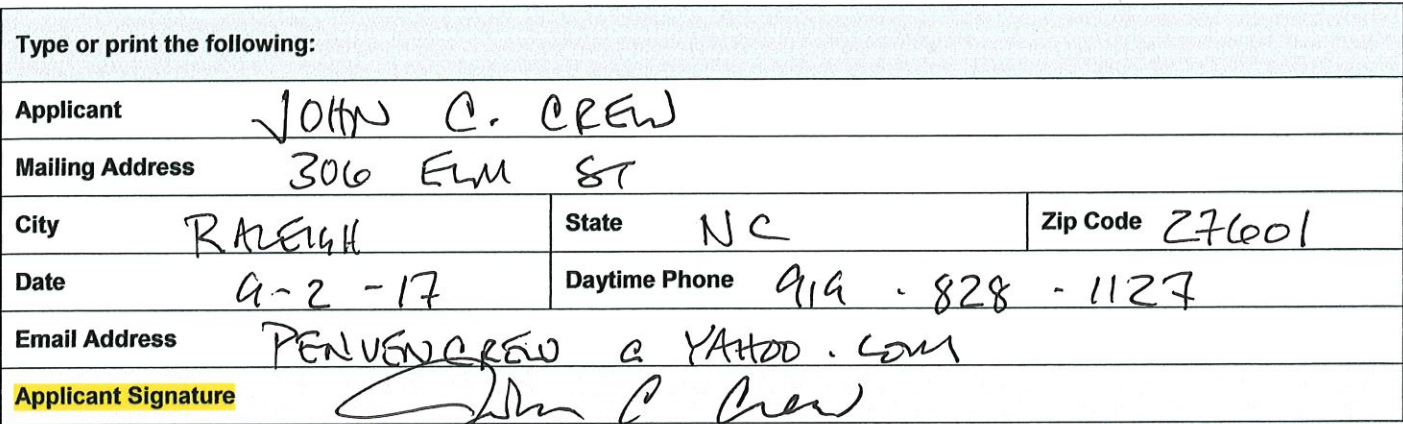 Type or print the following:
Applicant JOHN C. CREW
Mailing Address 306 ELM ST
City RALEIGH State NC Zip Code 27601
Date 9-2-17 Daytime Phone 919.828-1127
Email Address PENVENCREW @ YAHOO.COM
Applicant Signature John C Crew